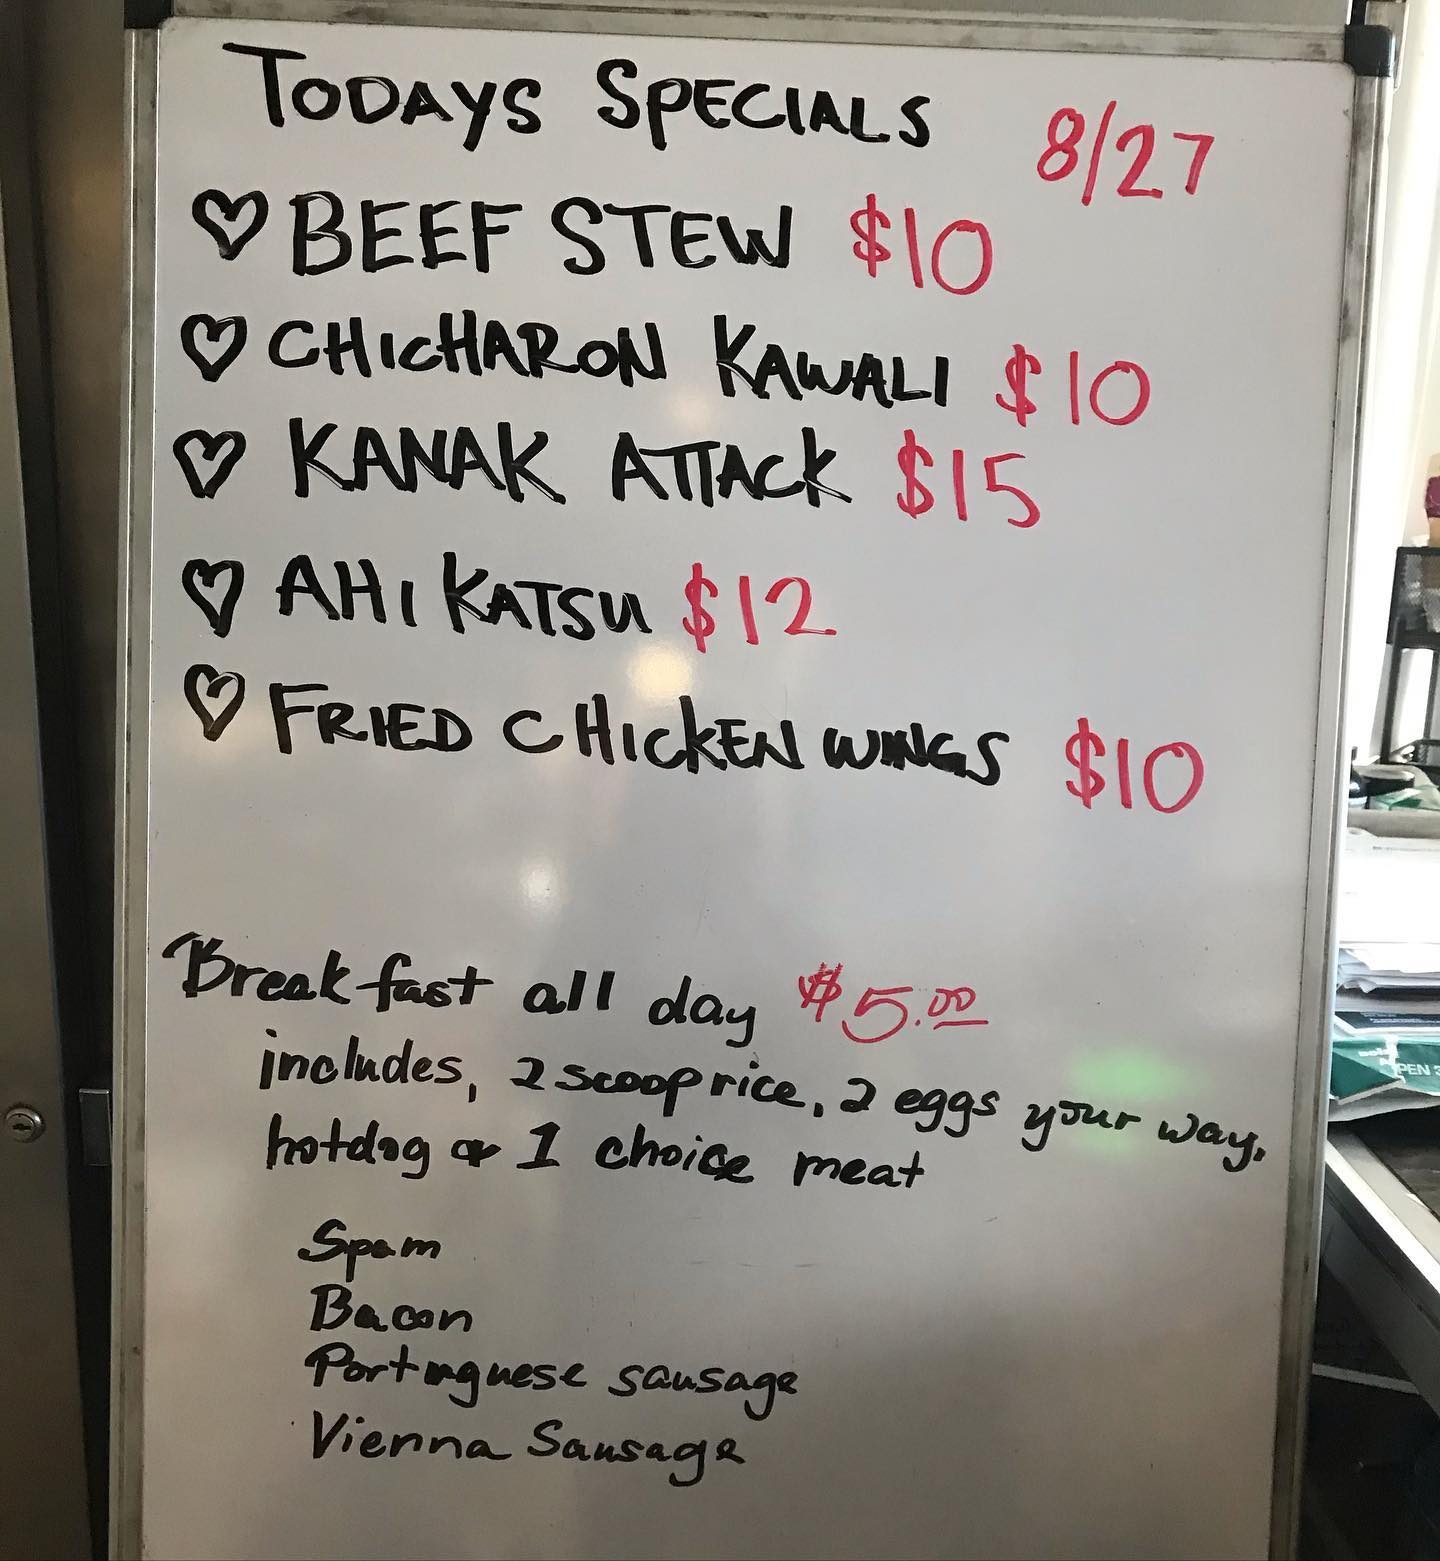 TODAYS SPECIALS 8/27
♡ BEEF STEW $10
♡ CHICHARON KAWALI $10
♡ KANAK ATTACK $15
♡ AHI KATSU $12
♡ FRIED CHICKEN WINGS $10
Breakfast all day $5.00
includes, 2 scoop rice, 2 eggs your way,
hotdog or 1 choice meat
Spam
Bacon
Portuguese sausage
Vienna Sausage